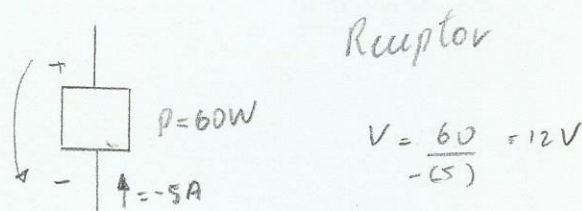 Receptor
+
P=60W
V = 60/-(5) = 12V
-
↑=-5A